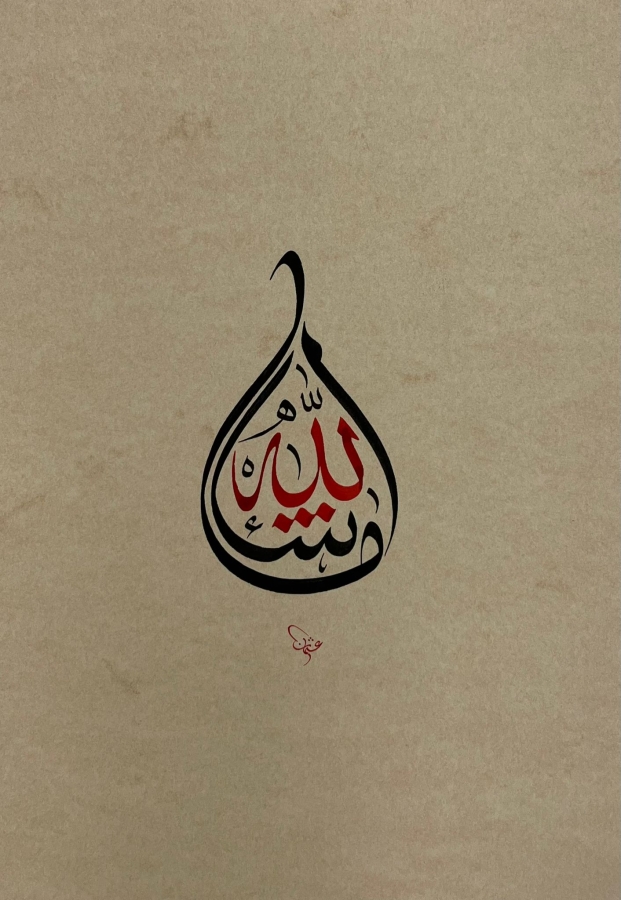 ما شاء الله
عثمان